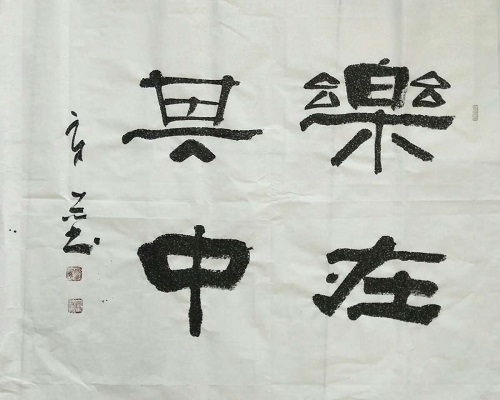 樂在
其中